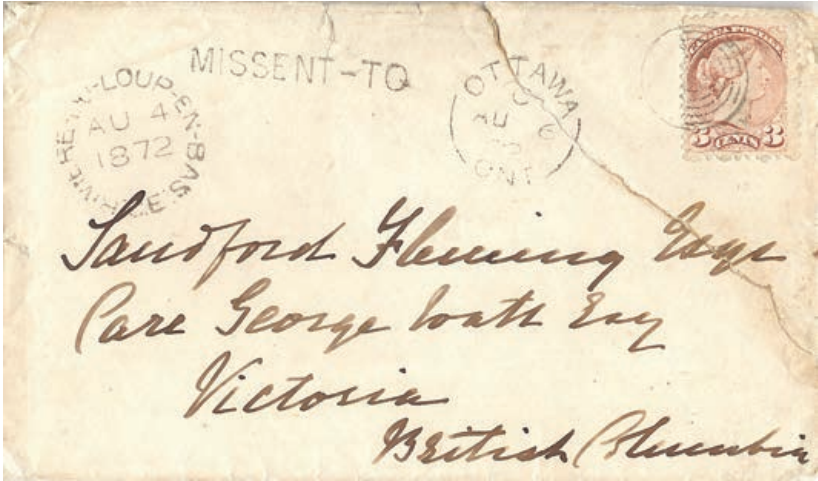 MISSENT-TO
RIVIERE-DU-LOUP-EN-BAS
AU 4
1872
OTTAWA
AU 6
ONT
CANADA POSTAGE
3 CENTS 3
Sandford Fleming Esqr
Care George Watt Esq
Victoria
British Columbia